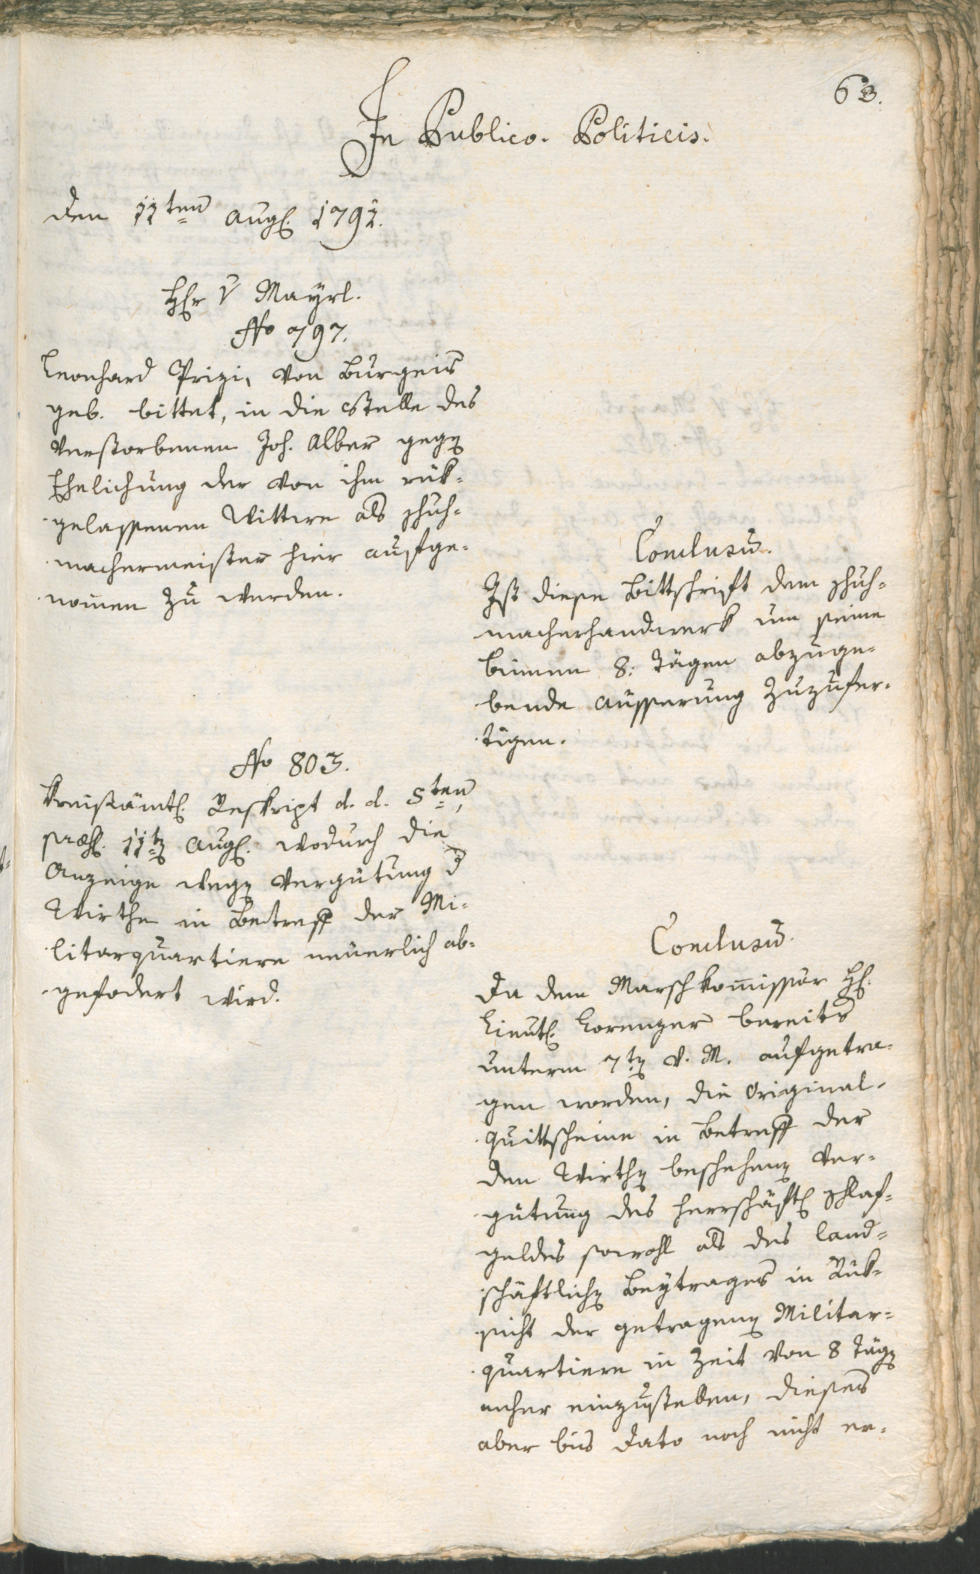 63.
In Publico. Politicis.
den 11ten Aug. 1791.
H̅r v Mayrl.
No 797.
Leonhard Prizi, von Burgeis
geb. bittet, in die Stelle des
verstorbenen Joh. Alber gegen
Ehelichung der von ihm rük-
gelassenen Wittwe als Schuh-
machermeister hier aufge-
nom̅en zu werden.
Conclusum̅.
Ist diese Bittschrift dem Schuh-
macherhandwerk um seine
binnen 8: Tägen abzuge-
bende Äusserung zuzufer-
tigen.
No 803.
Kreisämtl. Reskript d. d. 5ten,
præs. 11ten Aug. wodurch die
Anzeige wegen Vergütung d
Wirthe in Betreff der Mi-
litarquartiere neuerlich ab-
gefodert wird.
Conclusum̅.
Da dem Marschkom̅issär H.
Lieut. Lorenzer bereits
unterm 7ten d. M. aufgetra-
gen worden, die Original-
quittscheine in Betreff der
den Wirthen beschehenen Ver-
gütung des herrschäftl Schlaf-
geldes sowohl als des land-
schäftlichen Beytrages in Rük-
sicht der getragenen Militar-
quartiere in Zeit von 8 Tägen
anher einzustellen, dieses
aber bis dato noch nicht er-